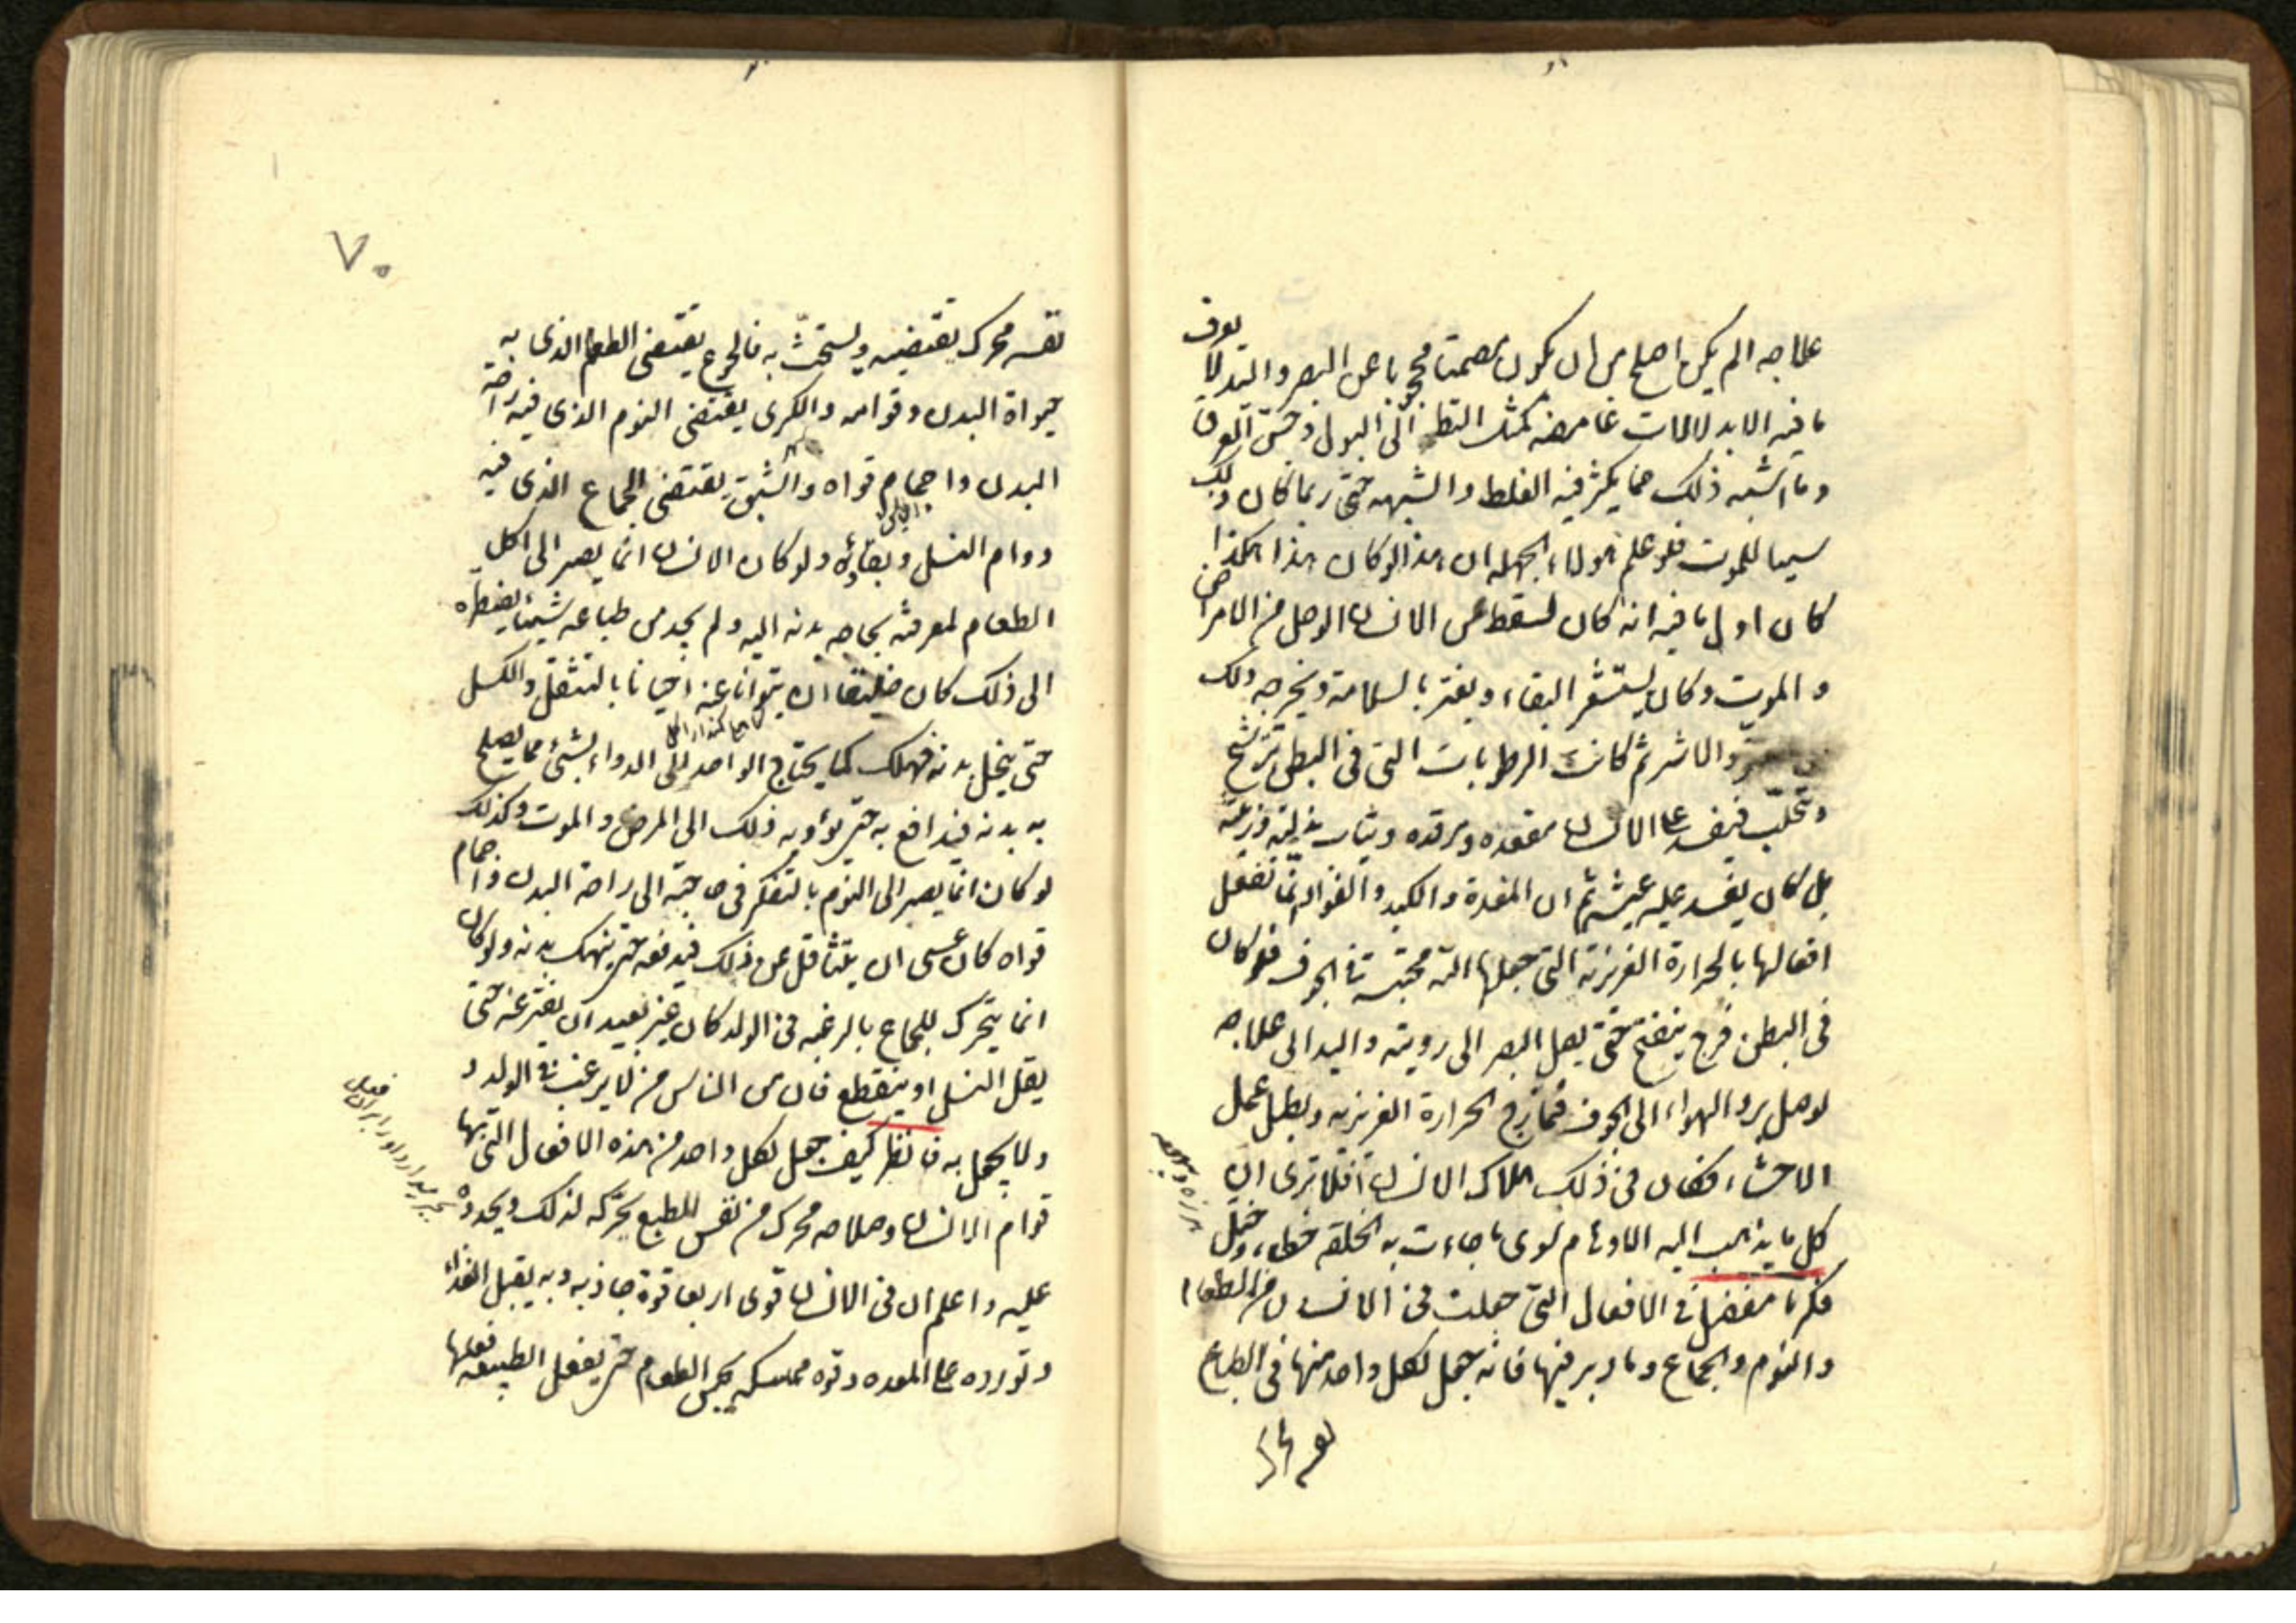 علاجه الم يكن اصلح من ان يكون مصمتا محجوبا عن البصر واليد لا يعرف
ما فيه الا بدلالات غامضة كمثل النظر الى البول وحسّ العرق
وما اشبه ذلك مما يكثر فيه الغلط والشبهه حتى ربما كان ذلك
سببا للموت فلو علم هولاء الجهله ان هذا لو كان هذا هكذا
كان اول ما فيه انه كان لسقط عن الانسان الوجل من الامراض
و الموت وكان يستشعر البقاء ويغتر بالسلامة ويخرجه ذلك
والاشر ثم كانت الرطوبات التى فى البطن تترشح
وتتحلّب فيفسد على الانسان مقعده ومرقده وثياب بذلته وزينته
بل كان يفسد عليه عيشه ثم ان المعدة والكبد والفواد انما تفعل
افعالها بالحرارة الغريزية التى جعلها الله محتبسة فى الجوف فلو كان
فى البطن فرج ينفتح حتى يصل البصر الى رويته واليد الى علاجه
لوصل برد الهواء الى الجوف فمازج الحرارة الغريزيه وبطل عمل
الاحشاء فكان فى ذلك هلاك الانسان افلا ترى ان
كل ما يذهب اليه الاوهام سوى ما جاءت به الخلقه خطاء وخطل
فكر يا مفضل فى الافعال التى جعلت فى الانسان من الطعام
والنوم والجماع وما دبر فيها فانه جعل لكل واحد منها فى الطباع
نفسه محرك يقتضيه ويستحثّ به فالجوع يقتضى الطعام الذى به
حيوة البدن وقوامه والكرى يقتضى النوم الذى فيه راحة
البدن واجمام قواه والشبق يقتضى الجماع الذى فيه
دوام النسل وبقاؤه ولو كان الانسان انما يصير الى اكل
الطعام لمعرفته بحاجه بدنه اليه ولم يجد من طباعه شيئا يضطره
الى ذلك كان خليقا ان يتوانا عنه احيانا بالتثقل والكسل
حتى ينحل بدنه فيهلك كما يحتاج الواحد الى الدواء لشئ مما يصلح
به بدنه فيدافع به حتى يؤديه ذلك الى المرض و الموت وكذلك
لو كان انما يصير الى النوم بالتفكر فى حاجته الى راحة البدن واجمام
قواه كان عسى ان يتثاقل عن ذلك فيدفعه حتى ينهك بدنه ولو كان
انما يتحرك للجماع بالرغبه فى الولد كان غير بعيد ان يفتر عنه حتى
يقل النسل او ينقطع فان من الناس من لا يرغب فى الولد و
ولا يحفل به فانظر كيف جعل لكل واحد من هذه الافعال التى بها
قوام الانسان وصلاحه محرك من نفس الطبع يحركه لذلك ويحدوه
عليه واعلم ان فى الانسان قوى اربعا قوة جاذبه وبه يقبل الغذاء
وتورده على المعده وقوه ممسكه تحبس الطعام حتى يفعل الطبيعه فعلها
٧٠